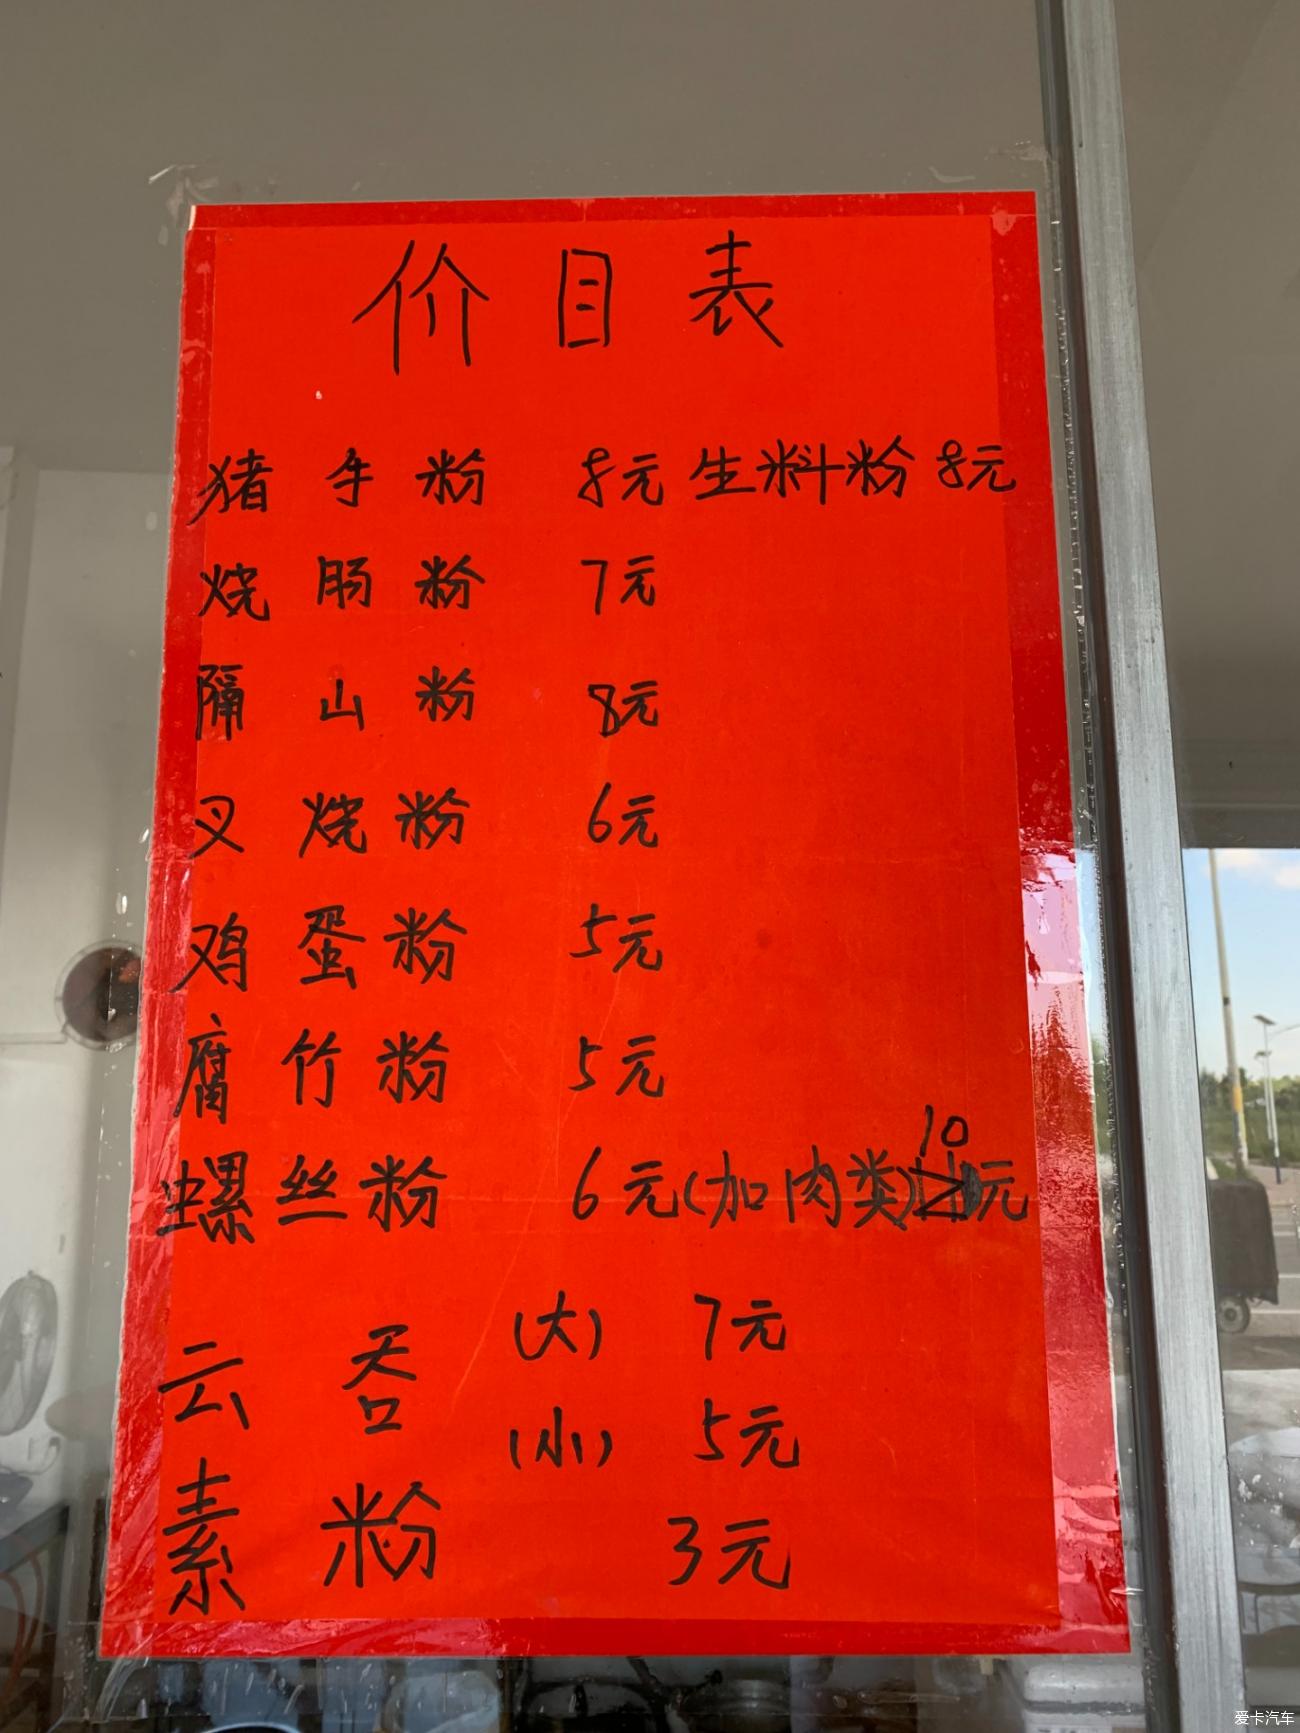 价目表
猪手粉 8元 生料粉 8元
烧肠粉 7元
隔山粉 8元
叉烧粉 6元
鸡蛋粉 5元
腐竹粉 5元
螺丝粉 6元(加肉类)10元
云吞 (大) 7元
(小) 5元
素粉 3元
爱卡汽车